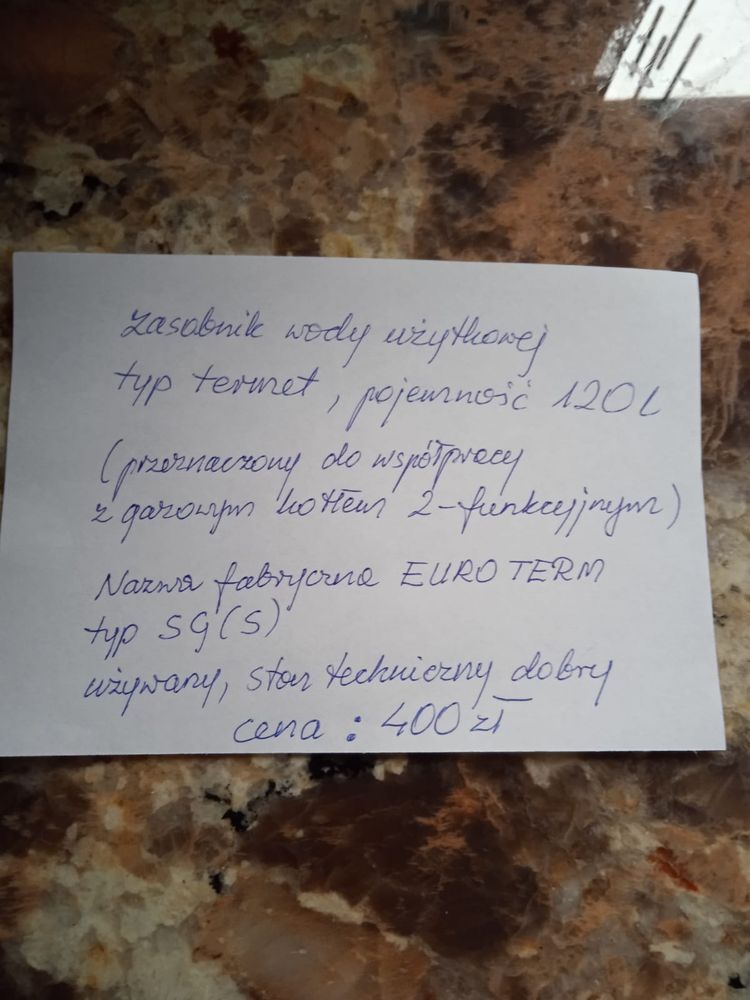 Zasobnik wody użytkowej
typ termet, pojemność 120 l
(przeznaczony do współpracy
z gazowym kotłem 2-funkcyjnym)
Nazwa fabryczna EUROTERM
typ SG(S)
używany, stan techniczny dobry
cena : 400 zł